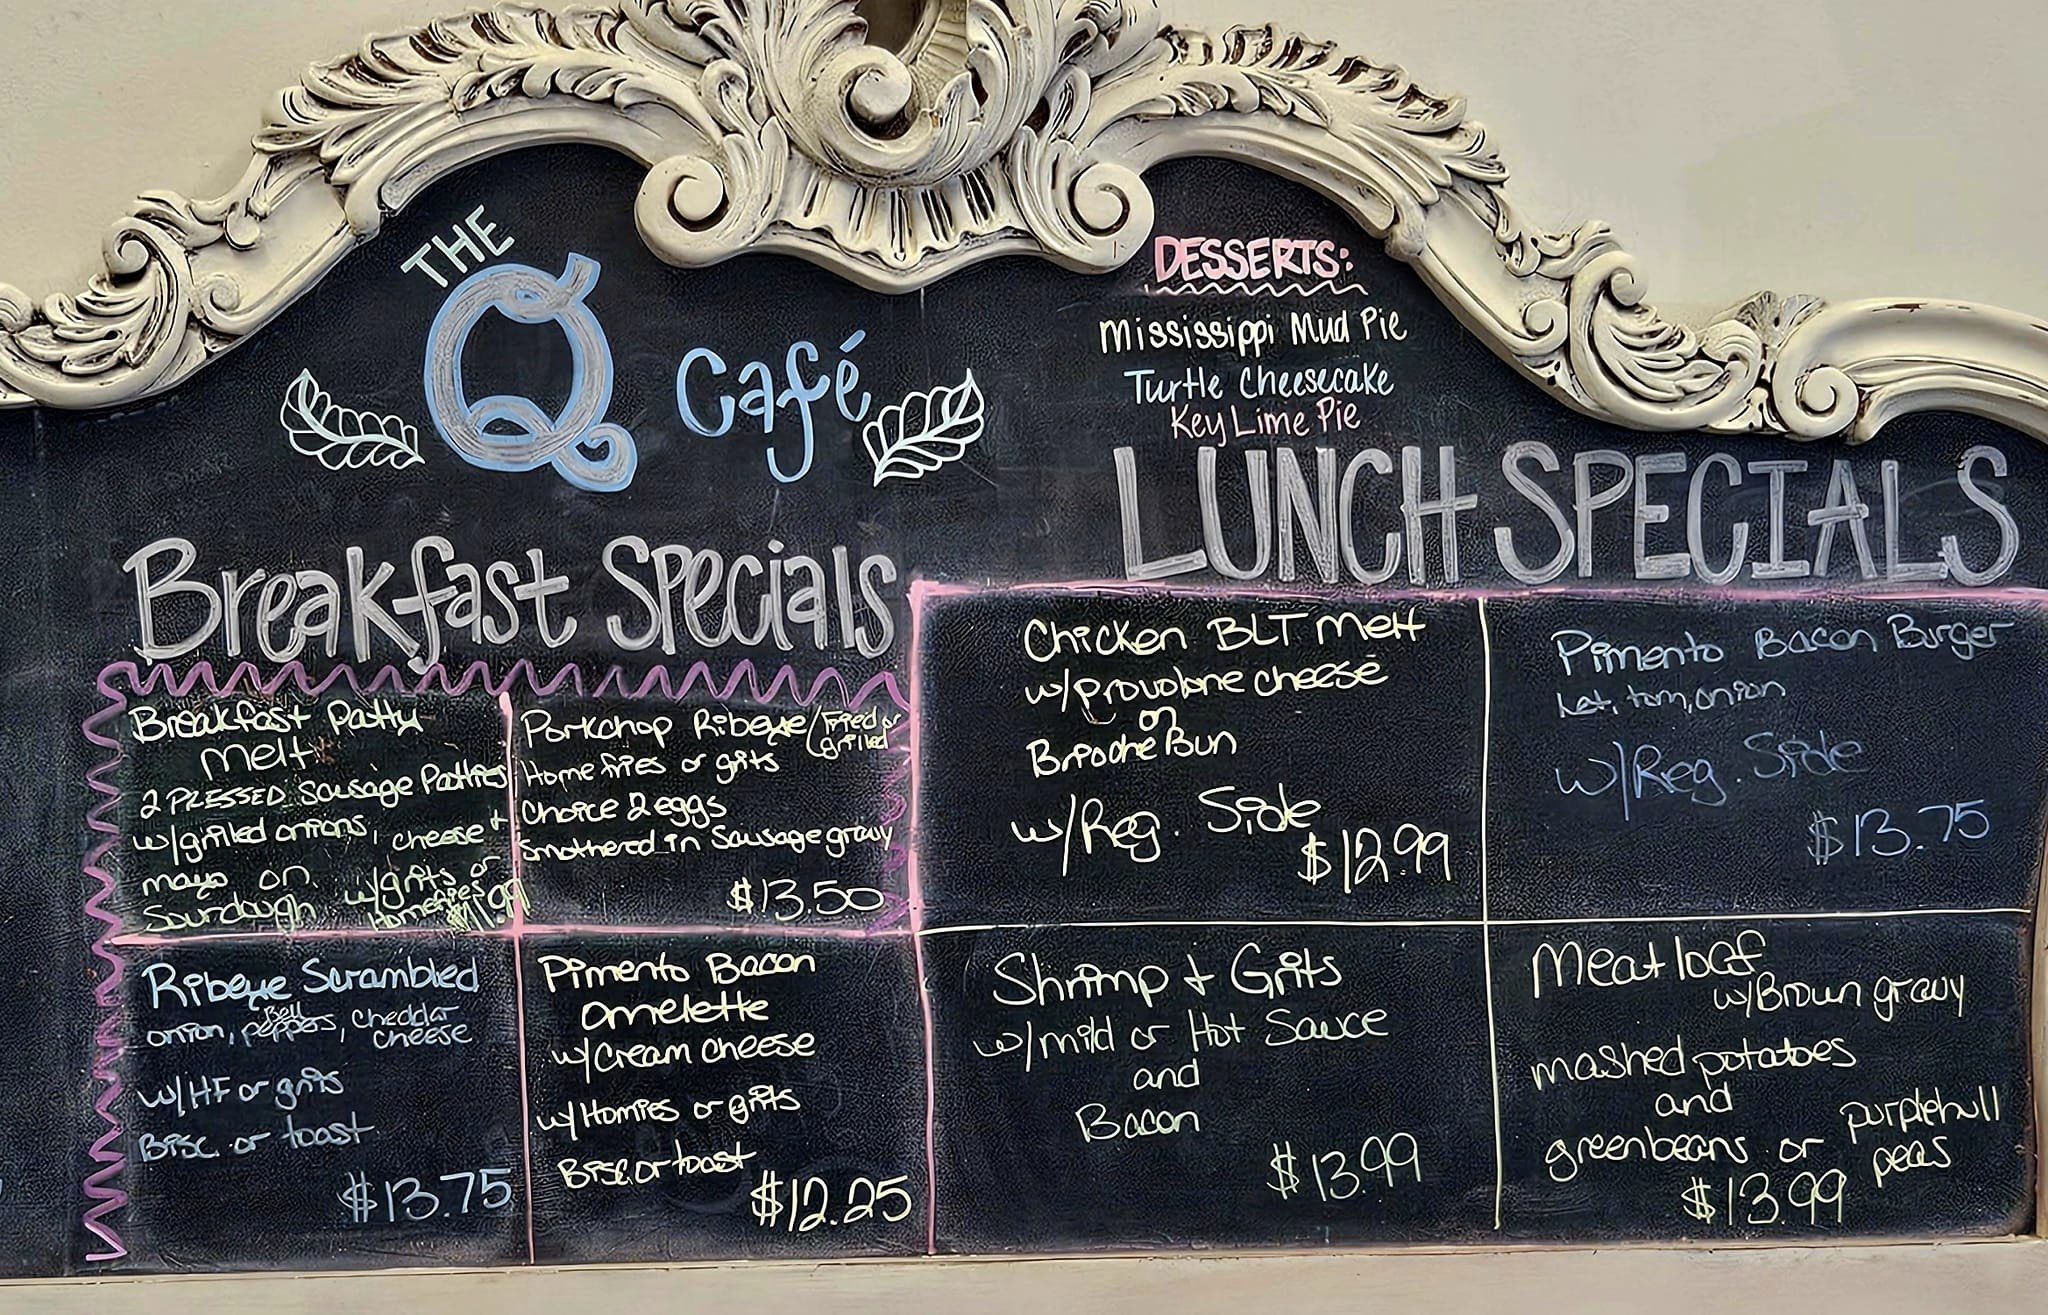 THE
Q café
DESSERTS:
Mississippi Mud Pie
Turtle Cheesecake
Key Lime Pie
Breakfast Specials
Breakfast Patty
melt
2 PRESSED Sausage Patties
w/grilled onions, cheese +
mayo on w/grits or
Sourdough Homefries
$11.99
Porkchop Ribeye/Fried or
grilled
Home fries or grits
Choice 2 eggs
Smothered in Sausage gravy
$13.50
Ribeye Scrambled
onion, Bell peppers, cheddar
cheese
w/HF or grits
Bisc. or toast
$13.75
Pimento Bacon
Omelette
w/Cream cheese
w/Homies or grits
Bisc. or toast
$12.25
LUNCH SPECIALS
Chicken BLT melt
w/provolone cheese
on
Brioche Bun
w/Reg. Side
$12.99
Pimento Bacon Burger
Let, tom, onion
w/Reg. Side
$13.75
Shrimp + Grits
w/mild or Hot Sauce
and
Bacon
$13.99
Meatloaf
w/Brown gravy
mashed potatoes
and
greenbeans or purplehull
peas
$13.99